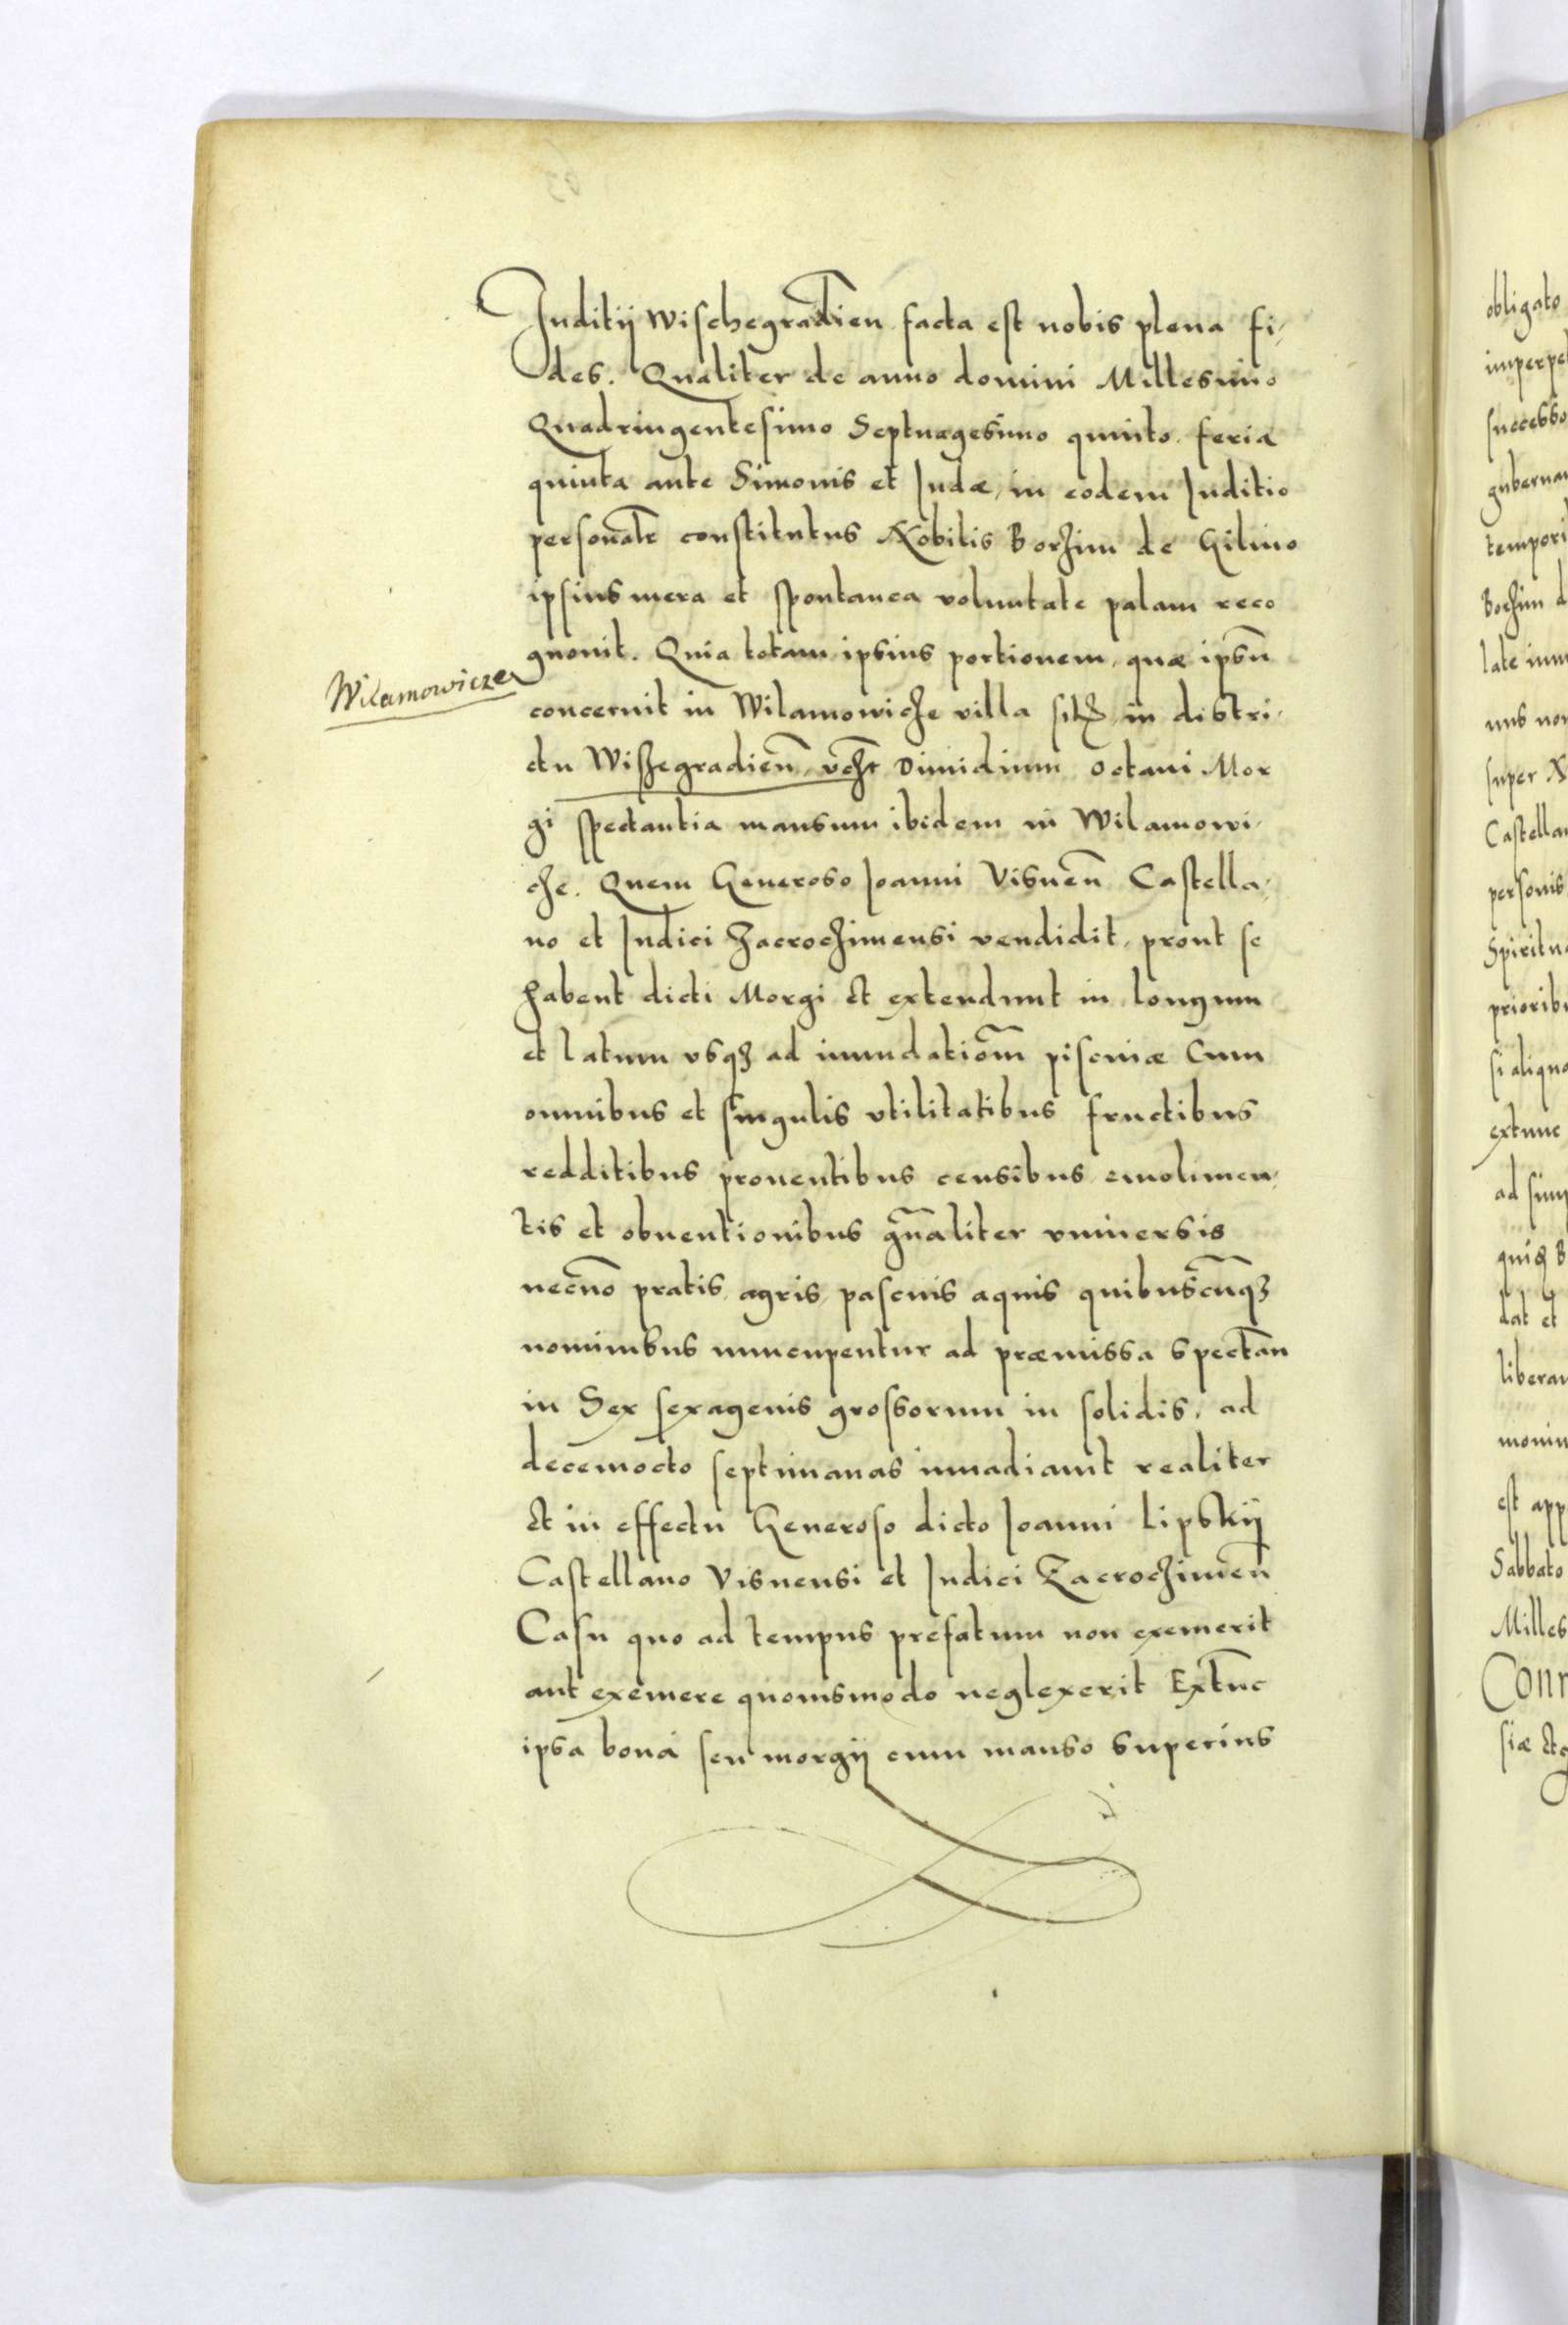 Juditij Wischegradien facta est nobis plena fi-
des. Qualiter de anno domini Millesimo
Quadringentesimo Septuagesimo quinto feria
quinta ante Simonis et Judæ, in eodem Juditio
personalr constitutus Nobilis Borzim de Gilino
ipsius mera et spontanea voluntate palam reco
gnouit. Quia totam ipsius portionem, quæ ipsū
Wilamowicze
concernit in Wilamowicze villa in distri-
ctu Wiszegradien̄ Dimidium octaui Mor
gi spectantia mansum ibidem in Wilamowi-
cze. Quem Generoso Joanni Visnen̄ Castella-
no et Judici Zacroczimensi vendidit, prout se
habent dicti Morgi et extendunt in longum
et latum vsqȝ ad inundatiom̄ piscinæ Cum
omnibus et singulis vtilitatibus fructibus
redditibus prouentibus censibus emolumen-
tis et obuentionibus gn̄aliter vniuersis
necno̅ pratis, agris, pascuis aquis quibuscūqȝ
nominibus nuncupentur ad præmissa spectan̄
in Sex sexagenis grossorum in solidis, ad
decemocto septimanas inuadiauit realiter
et in effectu Generoso dicto Joanni Lipskij
Castellano Visnensi et Judici Zacroczimen̄
Casu quo ad tempus prefatum non exemerit
aut exemere quouismodo neglexerit Extūc
ipsa bona seu morgij cum manso superius
obligato
successo
gubernan
tempori
Borzim d
late inm
uus non
super N
Castellan
personis
Spiritua
prioribu
si aliquo
extunc
ad simp
dat et
liberan
monim
est app
Sabbato
Milles
siæ